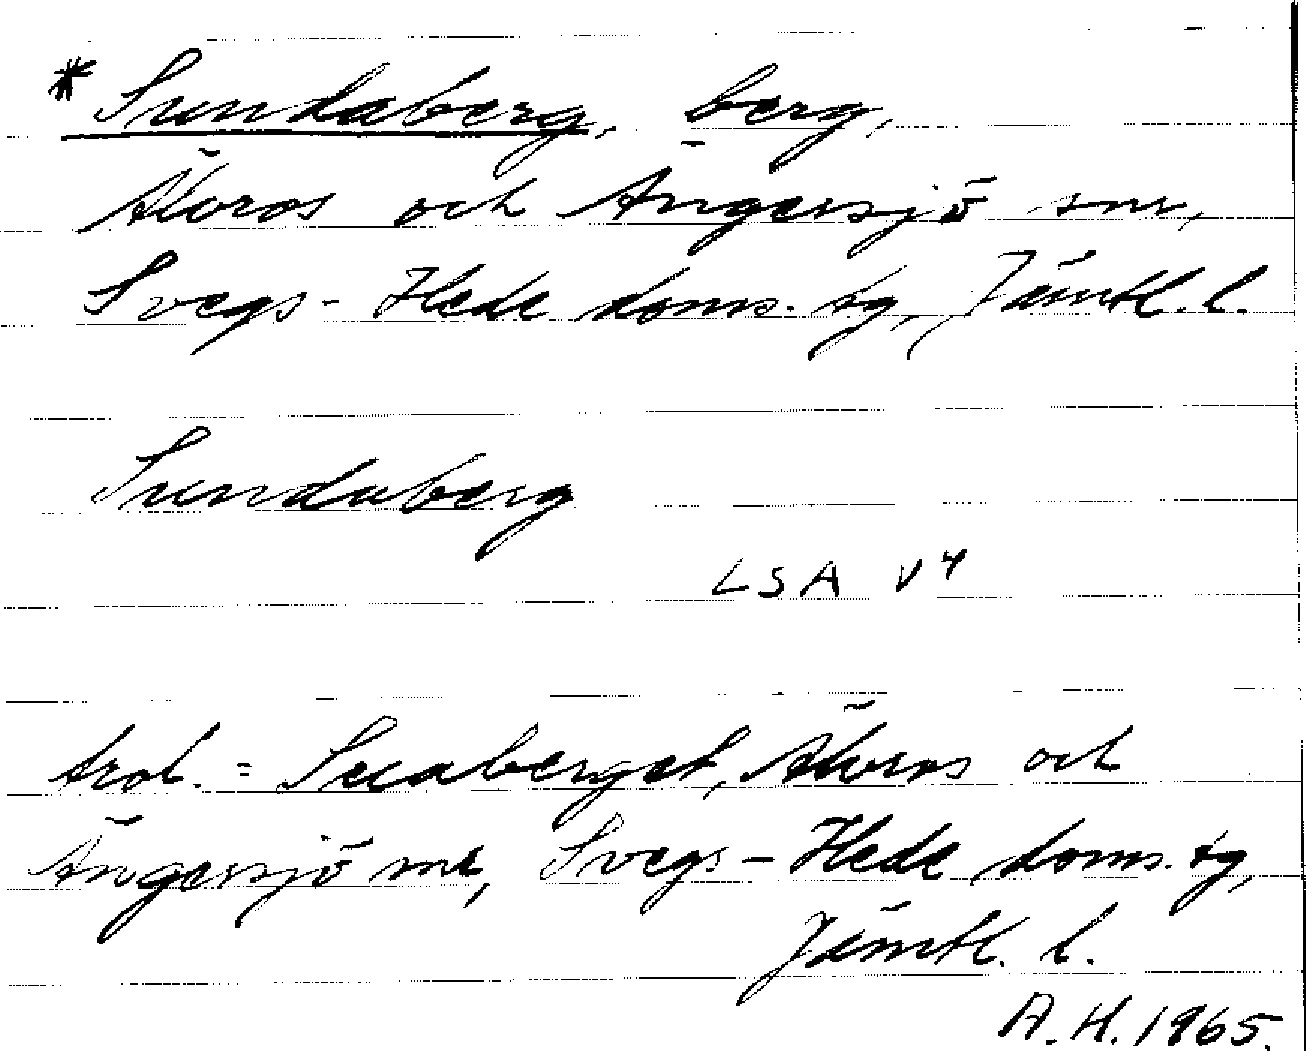 * Sundaberg, berg,
Älvros och Ängersjö snr,
Svegs-Hede doms. tg, Jämtl. l.
Sundaberg
LSA V4
trol. = Suaberget, Älvros och
Ängersjö snr, Svegs-Hede doms. tg,
Jämtl. l.
A.H. 1965.